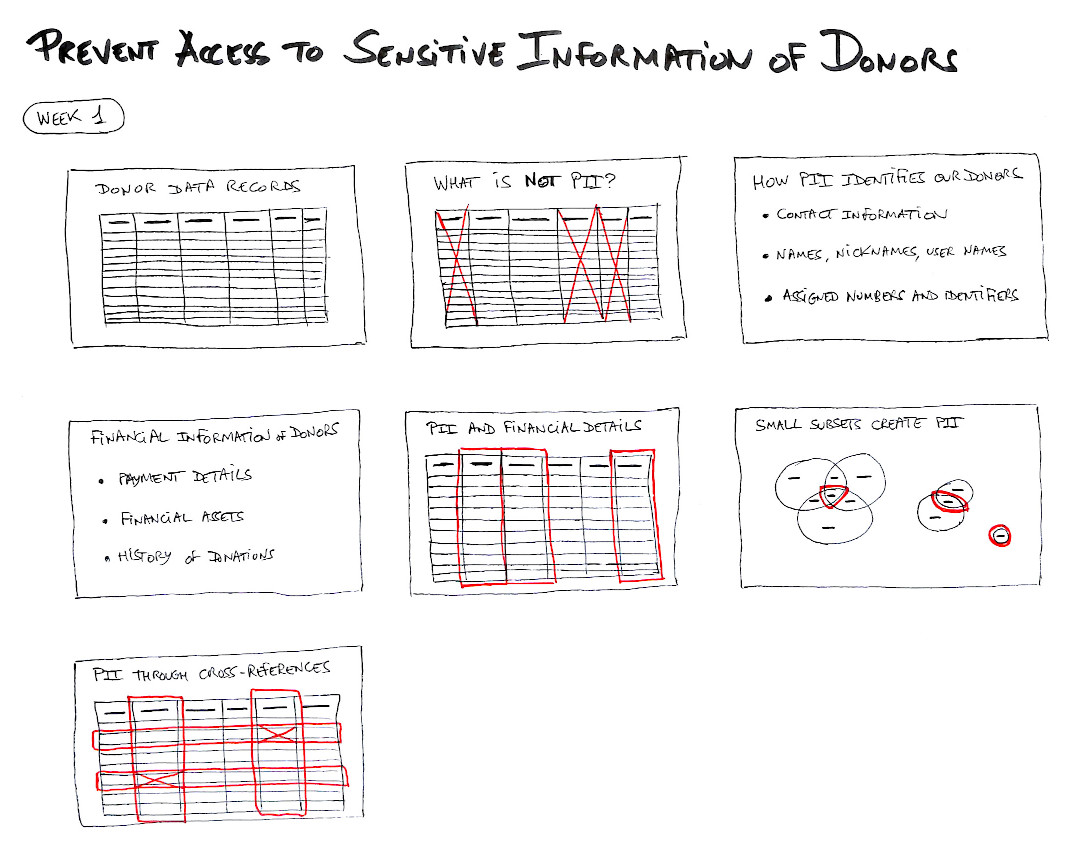 PREVENT ACCESS TO SENSITIVE INFORMATION OF DONORS
WEEK 1
DONOR DATA RECORDS
WHAT IS NOT PII?
HOW PII IDENTIFIES OUR DONORS
• CONTACT INFORMATION
• NAMES, NICKNAMES, USER NAMES
• ASSIGNED NUMBERS AND IDENTIFIERS
FINANCIAL INFORMATION OF DONORS
• PAYMENT DETAILS
• FINANCIAL ASSETS
• HISTORY OF DONATIONS
PII AND FINANCIAL DETAILS
SMALL SUBSETS CREATE PII
PII THROUGH CROSS-REFERENCES